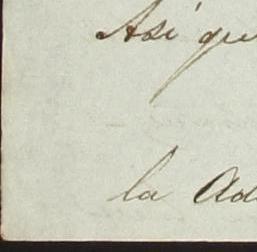 Así que
la Ad